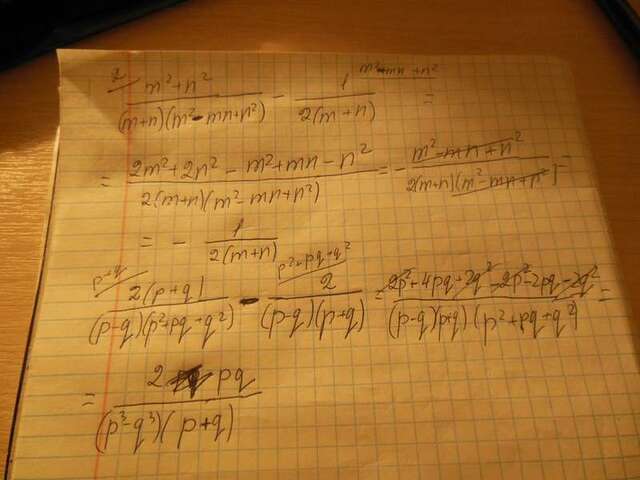 2/ m²+n² / (m+n)(m²-mn+n²) - 1 m²-mn+n² / 2(m+n) =
= 2m²+2n²-m²+mn-n² / 2(m+n)(m²-mn+n²) = - m²-m+n+n² / 2(m+n)(m²-mn+n²)
= - 1 / 2(m+n)
p+q/ 2(p+q) / (p-q)(p²+pq+q²) - p²+pq+q²/ 2 / (p-q)(p+q) = 2p²+4pq+2q²-2p²-2pq-2q² / (p-q)(p+q)(p²+pq+q²) =
= 2 pq / (p³-q³)(p+q)